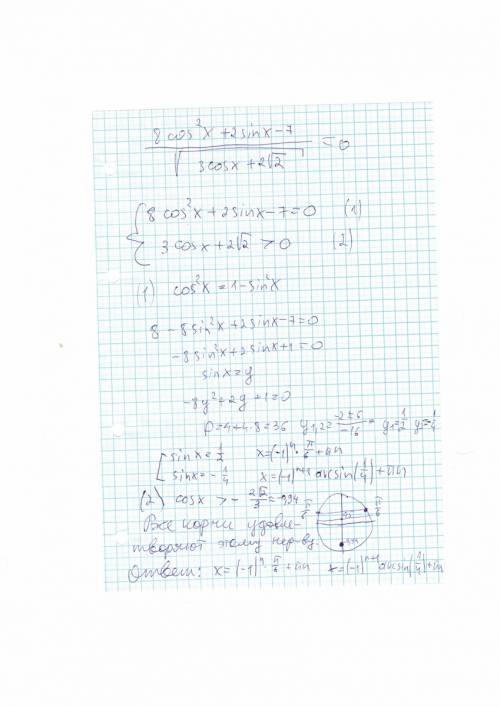 8cos²x + 2sinx - 7
√(3cosx + 2√2) = 0
{ 8cos²x + 2sinx - 7 = 0 (1)
3cosx + 2√2 > 0 (2)
(1) cos²x = 1 - sin²x
8 - 8sin²x + 2sinx - 7 = 0
-8sin²x + 2sinx + 1 = 0
sinx = y
-8y² + 2y + 1 = 0
D = 4 + 4·8 = 36 y1,2 = (-2±6)/(-16) = y1 = 1/2 y2 = -1/4
[ sinx = 1/2 x = (-1)ⁿ · π/6 + πn
sinx = -1/4 x = (-1)ⁿ⁺¹ arcsin(1/4) + πn
(2) cosx > - 2√2/3 =
Все корни удовле-
творяют этому нер-ву.
Ответ: x = (-1)ⁿ · π/6 + πn x = (-1)ⁿ⁺¹ arcsin(1/4) + πn